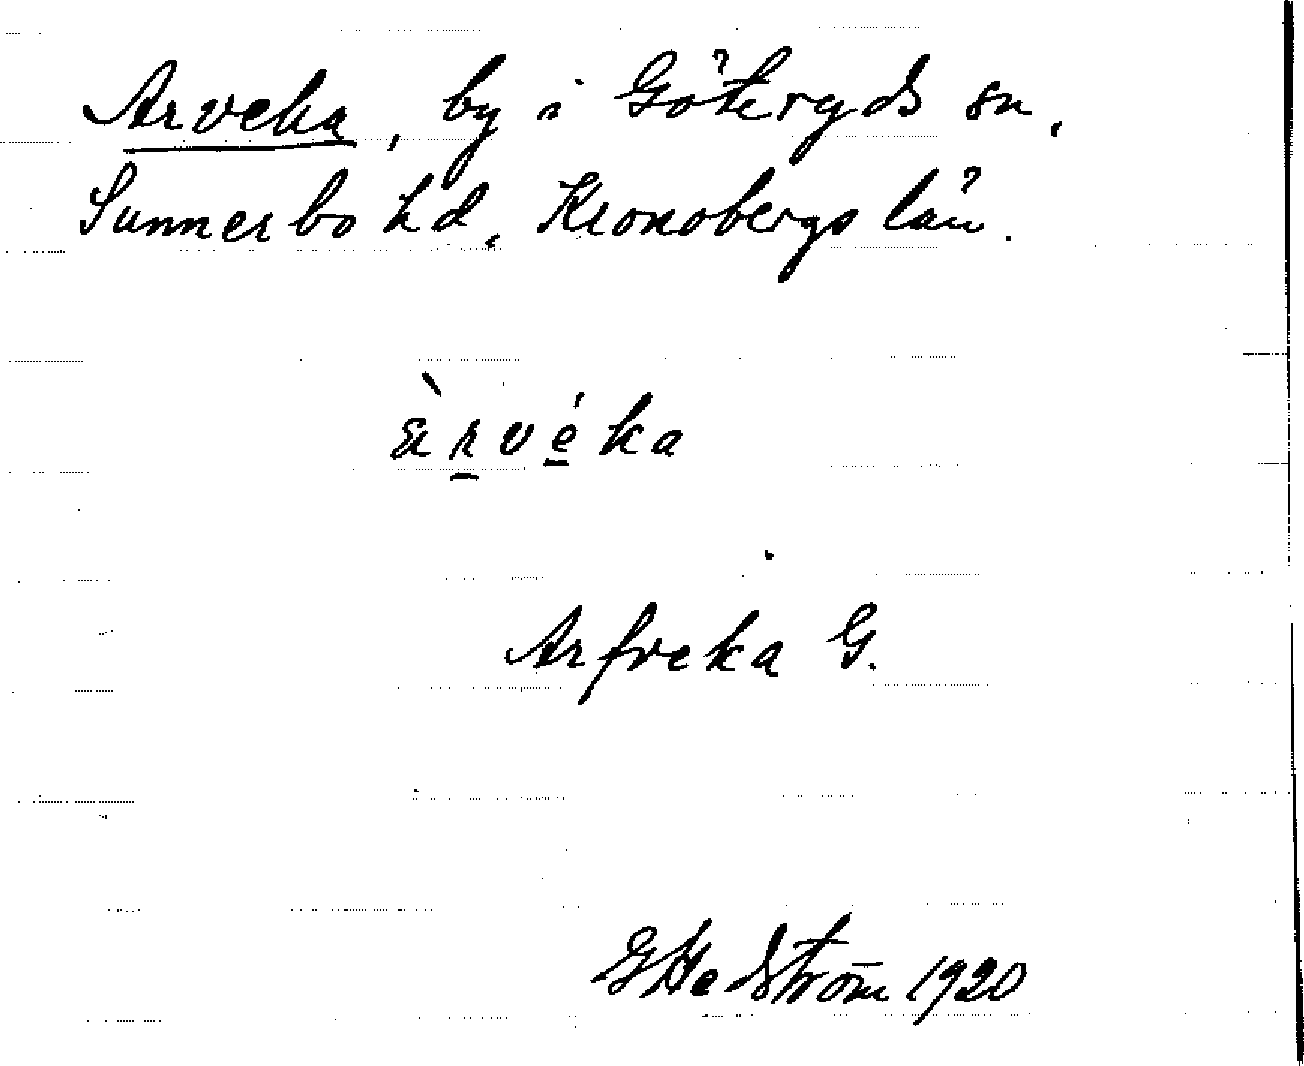 Arveka, by i Göteryds sn,
Sunnerbo hd, Kronobergs län.
ærveka
Arfveka G.
GHedström 1920